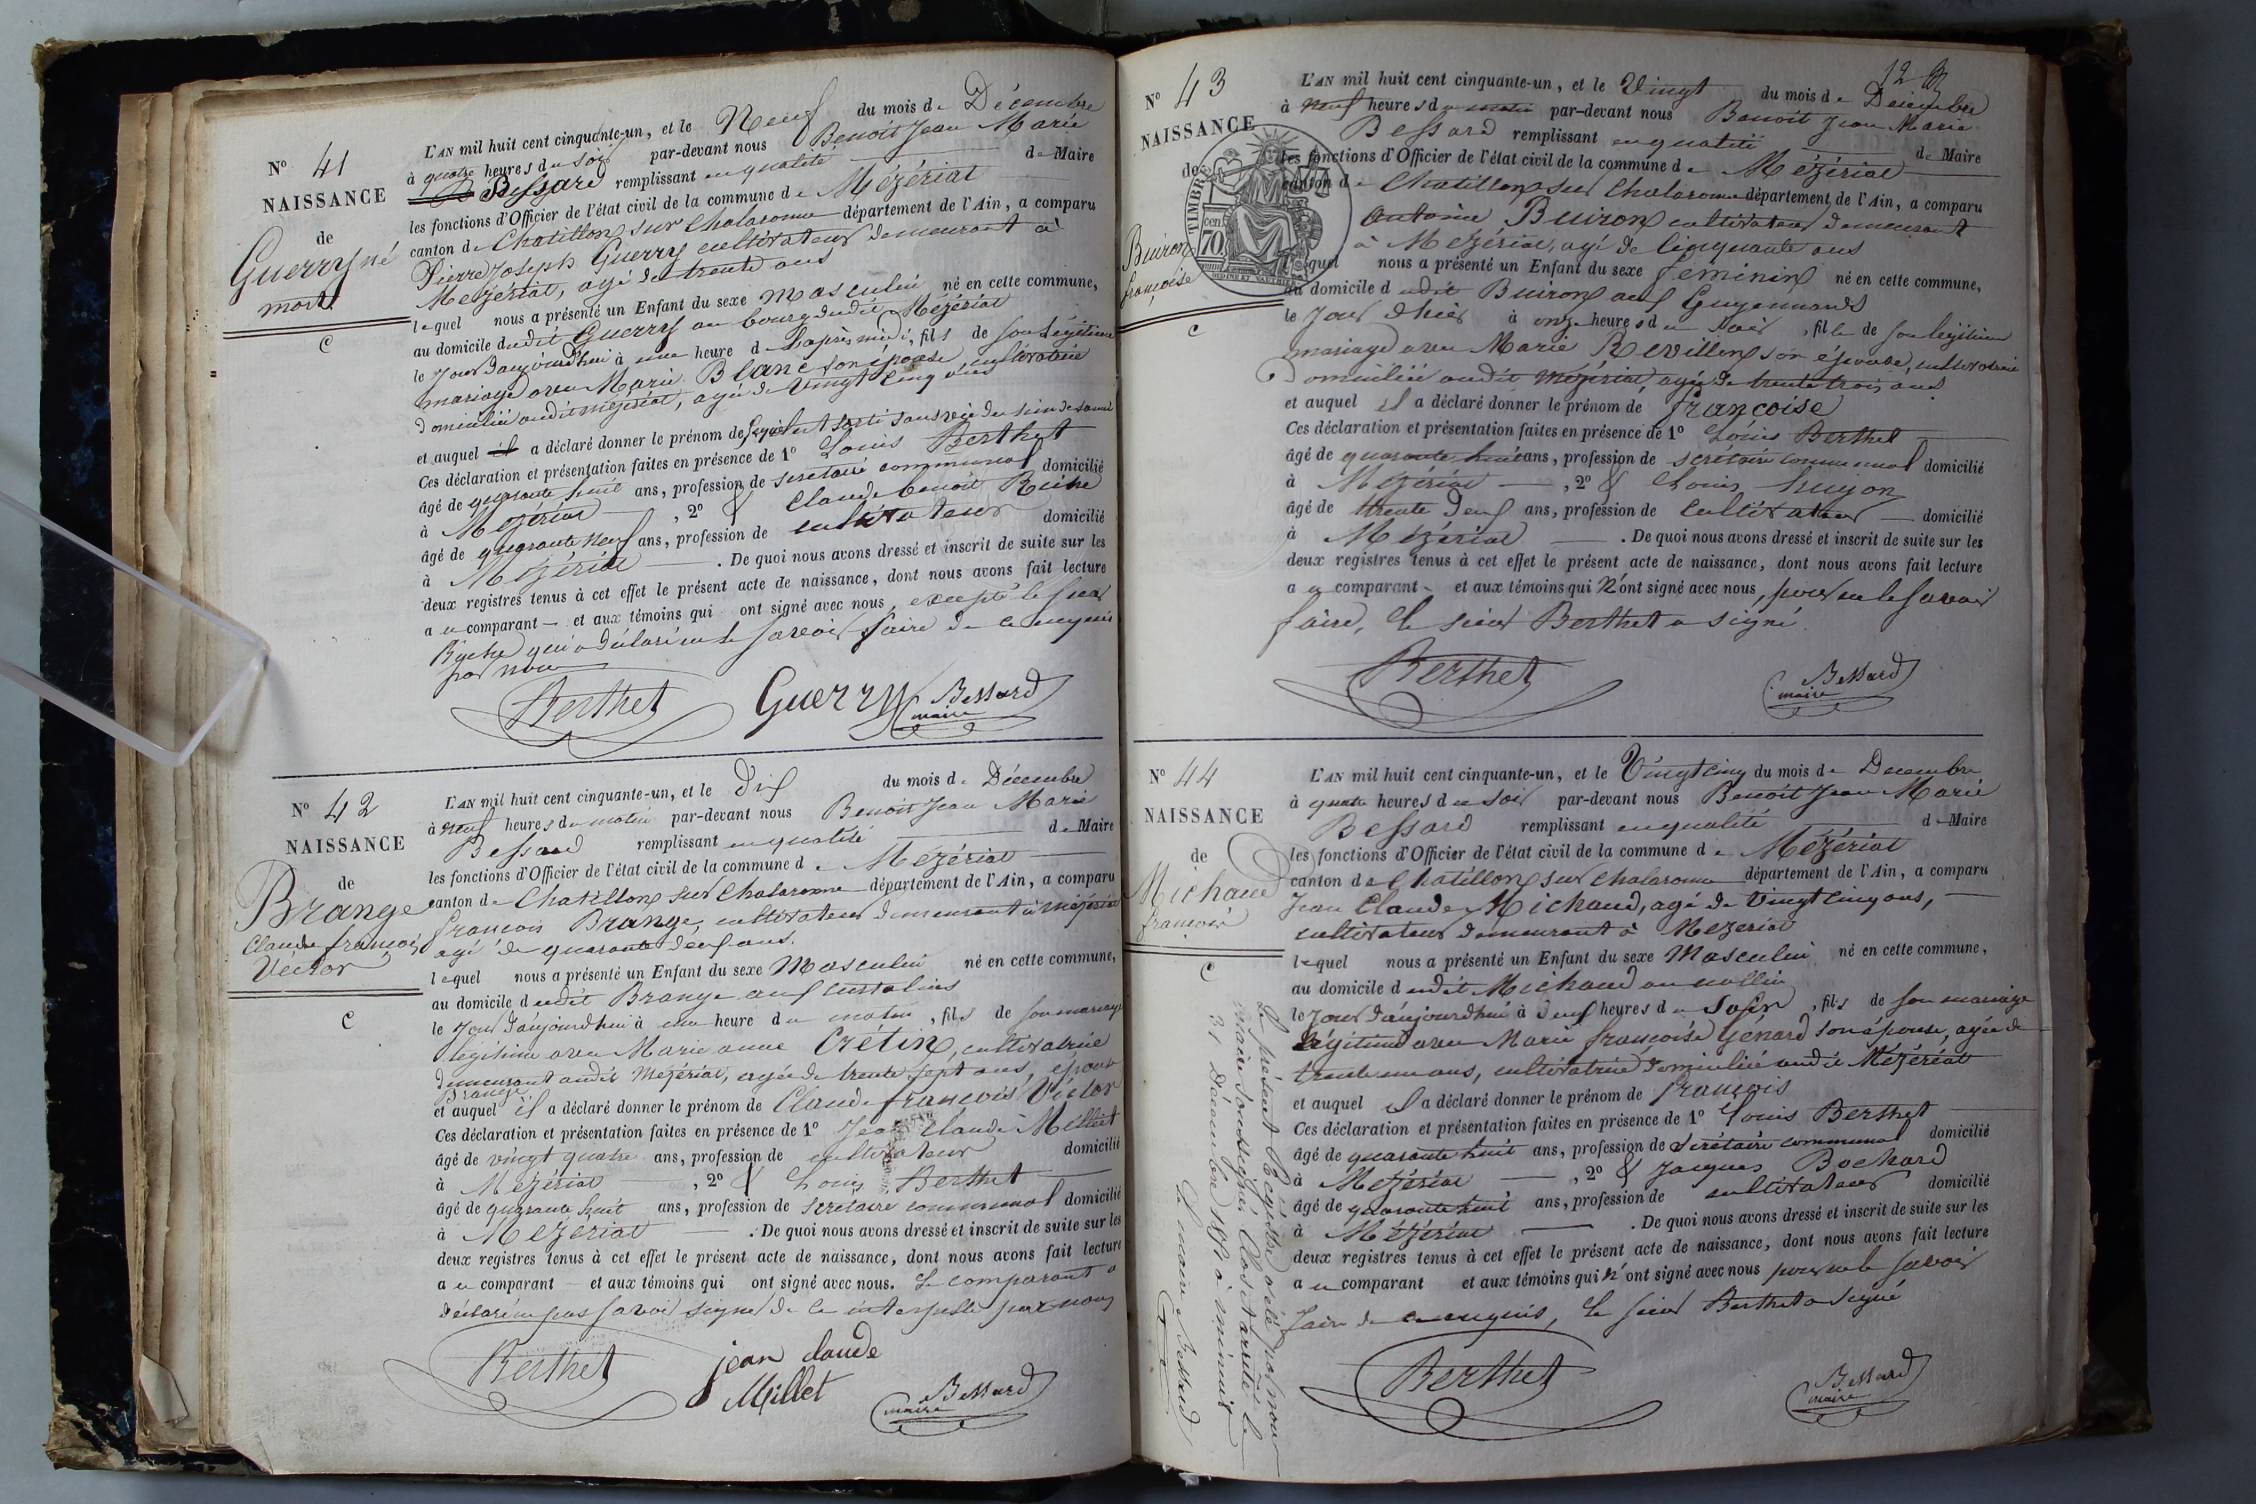 N° 41
NAISSANCE
de
Guerry né
mort
C
L'AN mil huit cent cinquante-un, et le Neuf du mois de Décembre
à quatre heures du soir par-devant nous Benoit Jean Marie
Bessard remplissant en qualité de Maire
les fonctions d'Officier de l'état civil de la commune de Mézériat
canton de Chatillon sur Chalaronne département de l'Ain, a comparu
Pierre Joseph Guerry cultivateur demeurant à
Mézériat, agé de trente ans
lequel nous a présenté un Enfant du sexe Masculin né en cette commune,
au domicile dudit Guerry au bourg dudit Mézériat
le jour d'aujourd'hui à une heure de l'après midi, fils de son légitime
mariage avec Marie Blanc son épouse, cultivatrice
domiciliée audit Mézériat, agée de vingt cinq ans
et auquel il a déclaré donner le prénom de lequel est sorti sans vie du sein de sa mère
Ces déclaration et présentation faites en présence de 1° Louis Berthet
âgé de quarante huit ans, profession de secrétaire communal domicilié
à Mézériat , 2° & Claude Benoit Ruche
âgé de quarante neuf ans, profession de cultivateur domicilié
à Mézériat . De quoi nous avons dressé et inscrit de suite sur les
deux registres tenus à cet effet le présent acte de naissance, dont nous avons fait lecture
au comparant et aux témoins qui ont signé avec nous, excepté le sieur
Ruche qui a déclaré ne le savoir faire de ce enquis
par nous
Berthet Guerry Bessard
maire
N° 42
NAISSANCE
de
Brange
Claude françois
Victor
C
L'AN mil huit cent cinquante-un, et le dix du mois de Décembre
à neuf heures du matin par-devant nous Benoit Jean Marie
Bessard remplissant en qualité de Maire
les fonctions d'Officier de l'état civil de la commune de Mézériat
canton de Chatillon sur Chalaronne département de l'Ain, a comparu
françois Brange, cultivateur demeurant à Mézériat
agé de quarante deux ans.
lequel nous a présenté un Enfant du sexe Masculin né en cette commune,
au domicile dudit Brange aux
le jour d'aujourd'hui à une heure du matin, fils de son mariage
légitime avec Marie anne Crétin, cultivatrice
demeurant audit Mézériat, agée de trente sept ans, épouse
Brange
et auquel il a déclaré donner le prénom de Claude françois Victor
Ces déclaration et présentation faites en présence de 1° Jean Claude Millet
âgé de vingt quatre ans, profession de cultivateur domicilié
à Mézériat , 2° & Louis Berthet
âgé de quarante huit ans, profession de secrétaire communal domicilié
à Mézériat . De quoi nous avons dressé et inscrit de suite sur les
deux registres tenus à cet effet le présent acte de naissance, dont nous avons fait lecture
au comparant et aux témoins qui ont signé avec nous. Le comparant a
déclaré ne pas savoir signer de ce interpellé par nous
Berthet jean claude
Millet Bessard
maire
12
N° 43
NAISSANCE
de
Buiron
françoise
C
TIMBRE
70 cen
L'AN mil huit cent cinquante-un, et le Vingt du mois de Décembre
à neuf heures du matin par-devant nous Benoit Jean Marie
Bessard remplissant en qualité de Maire
les fonctions d'Officier de l'état civil de la commune de Mézériat
canton de Chatillon sur Chalaronne département de l'Ain, a comparu
Antoine Buiron cultivateur demeurant
à Mézériat, agé de Cinquante ans
lequel nous a présenté un Enfant du sexe féminin né en cette commune,
au domicile dudit Buiron aux Guyennards
le jour d'hier à onze heures du soir, fille de son légitime
mariage avec Marie Revillon son épouse, cultivatrice
domiciliée audit Mézériat, agée de trente trois ans
et auquel il a déclaré donner le prénom de françoise
Ces déclaration et présentation faites en présence de 1° Louis Berthet
âgé de quarante huit ans, profession de secrétaire communal domicilié
à Mézériat , 2° & Louis
âgé de trente deux ans, profession de Cultivateur domicilié
à Mézériat . De quoi nous avons dressé et inscrit de suite sur les
deux registres tenus à cet effet le présent acte de naissance, dont nous avons fait lecture
au comparant et aux témoins qui n'ont signé avec nous, pour ne le savoir
faire, le sieur Berthet a signé
Berthet Bessard
maire
N° 44
NAISSANCE
de
Michaud
françois
C
L'AN mil huit cent cinquante-un, et le Vingt cinq du mois de Décembre
à quatre heures du soir par-devant nous Benoit Jean Marie
Bessard remplissant en qualité de Maire
les fonctions d'Officier de l'état civil de la commune de Mézériat
canton de Chatillon sur Chalaronne département de l'Ain, a comparu
Jean Claude Michaud, agé de Vingt cinq ans,
cultivateur demeurant à Mézériat
lequel nous a présenté un Enfant du sexe Masculin né en cette commune,
au domicile dudit Michaud au
le jour d'aujourd'hui à deux heures du soir, fils de son mariage
légitime avec Marie françoise Génard son épouse, agée de
trente un ans, cultivatrice domiciliée audit Mézériat
et auquel il a déclaré donner le prénom de françois
Ces déclaration et présentation faites en présence de 1° Louis Berthet
âgé de quarante huit ans, profession de secrétaire communal domicilié
à Mézériat , 2° & Jacques Bochard
âgé de quarante huit ans, profession de cultivateur domicilié
à Mézériat . De quoi nous avons dressé et inscrit de suite sur les
deux registres tenus à cet effet le présent acte de naissance, dont nous avons fait lecture
au comparant et aux témoins qui n'ont signé avec nous pour ne le savoir
faire de ce enquis, le sieur Berthet a signé
Berthet Bessard
maire
Le présent Registre a été par nous
maire soussigné Clos et arrêté le
31 Décembre 1851 à minuit
Le maire Bessard